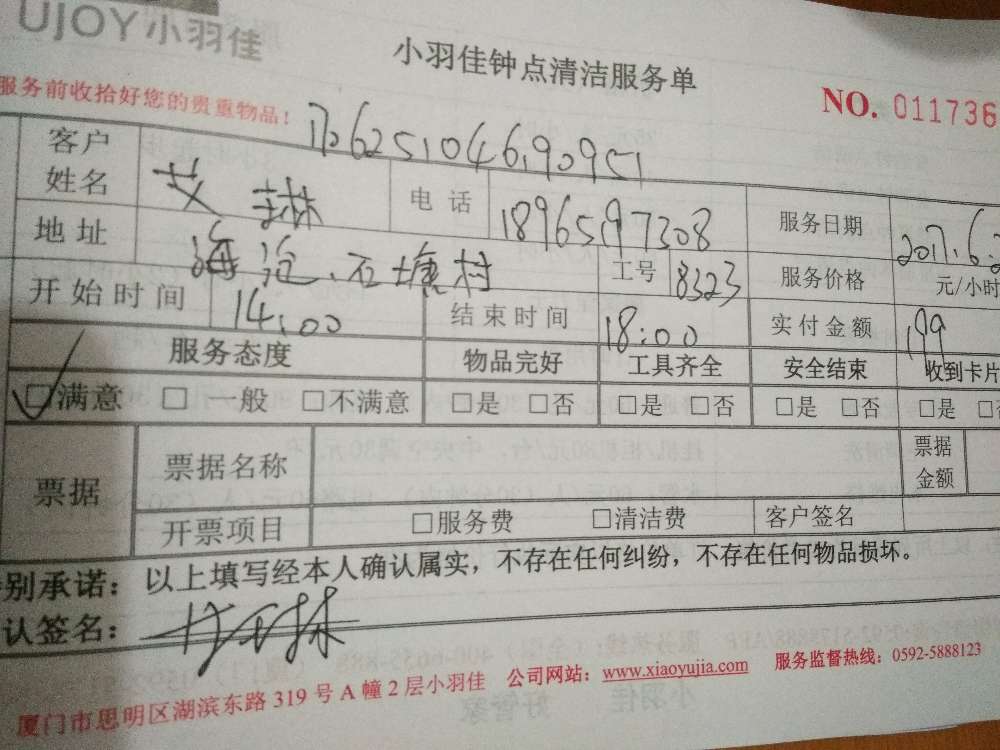 UJOY小羽佳
小羽佳钟点清洁服务单
服务前收拾好您的贵重物品! NO. 011736
客户姓名 艾 琳 电话 18965197308 服务日期 2017.6.
地址 海沧.石塘村 工号 18323 服务价格 元/小时
开始时间 14:00 结束时间 18:00 实付金额 199
服务态度 物品完好 工具齐全 安全结束 收到卡片
☑满意 □一般 □不满意 □是 □否 □是 □否 □是 □否 □是
票据 票据名称 票据金额
开票项目 □服务费 □清洁费 客户签名
别承诺：以上填写经本人确认属实，不存在任何纠纷，不存在任何物品损坏。
认签名：
厦门市思明区湖滨东路 319 号 A 幢 2 层小羽佳 公司网站：www.xiaoyujia.com 服务监督热线：0592-5888123